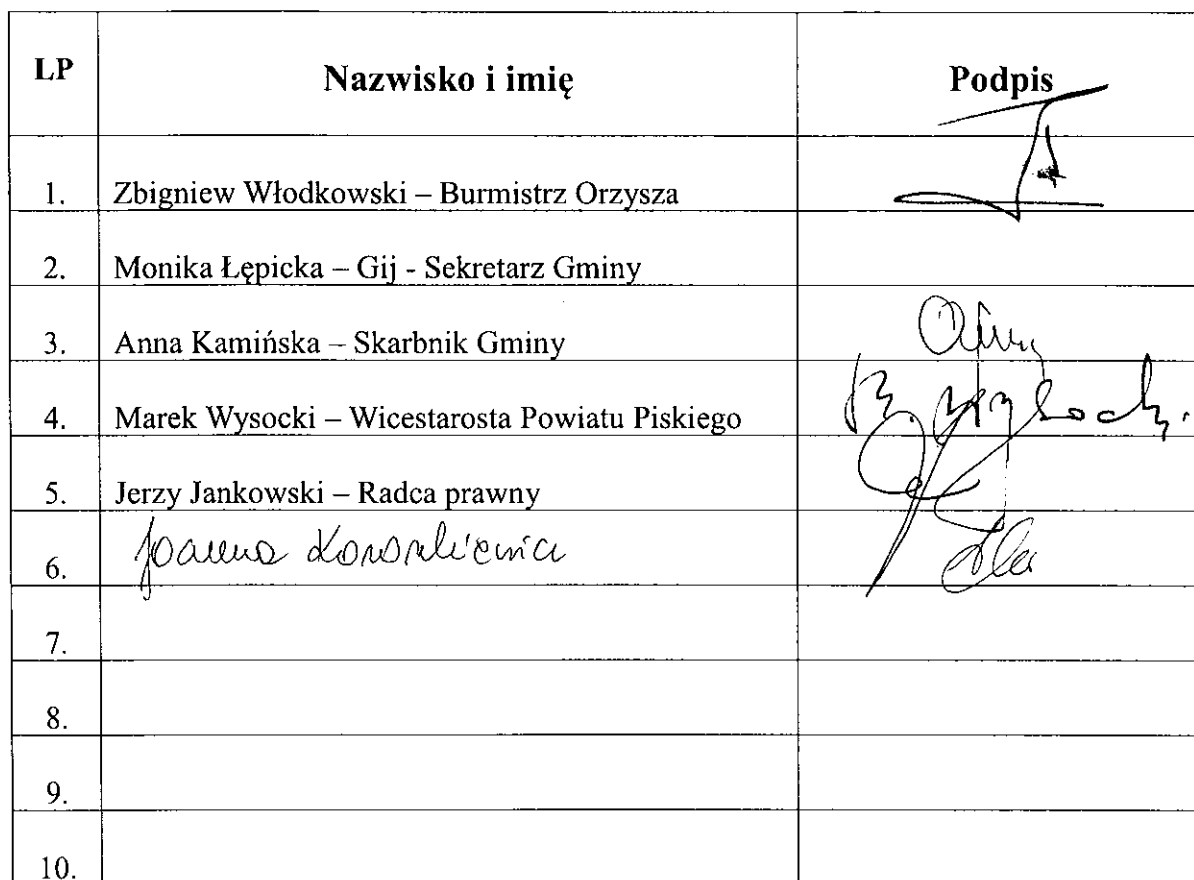 LP Nazwisko i imię Podpis
1. Zbigniew Włodkowski – Burmistrz Orzysza
2. Monika Łępicka – Gij - Sekretarz Gminy
3. Anna Kamińska – Skarbnik Gminy
4. Marek Wysocki – Wicestarosta Powiatu Piskiego
5. Jerzy Jankowski – Radca prawny
6. Joanna
7.
8.
9.
10.